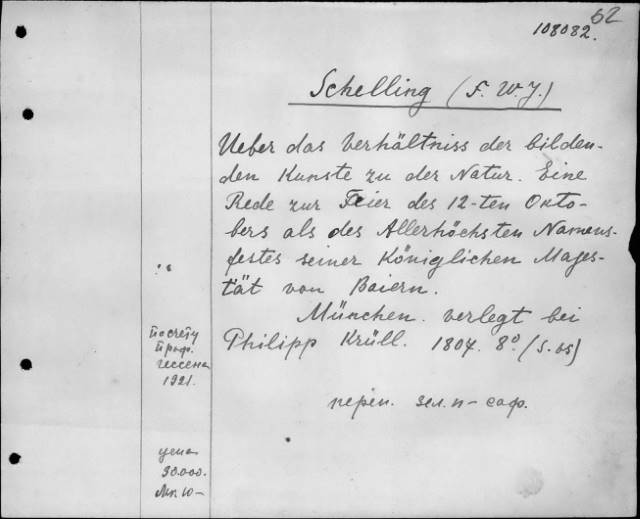 62
108082.
Schelling (F. W. J.)
Ueber das Verhältniss der bilden-
den Kunste zu der Natur. Eine
Rede zur Feier des 12-ten Okto-
bers als des Allerhöchsten Namens-
festes seiner Königlichen Mages-
tät von Baiern.
München. verlegt bei
Philipp Krüll. 1807. 8° (S. 65)
переп. зел. п- саф.
По счету
проф.
Гессена
1921.
цена
30.000.
Мк. 10-